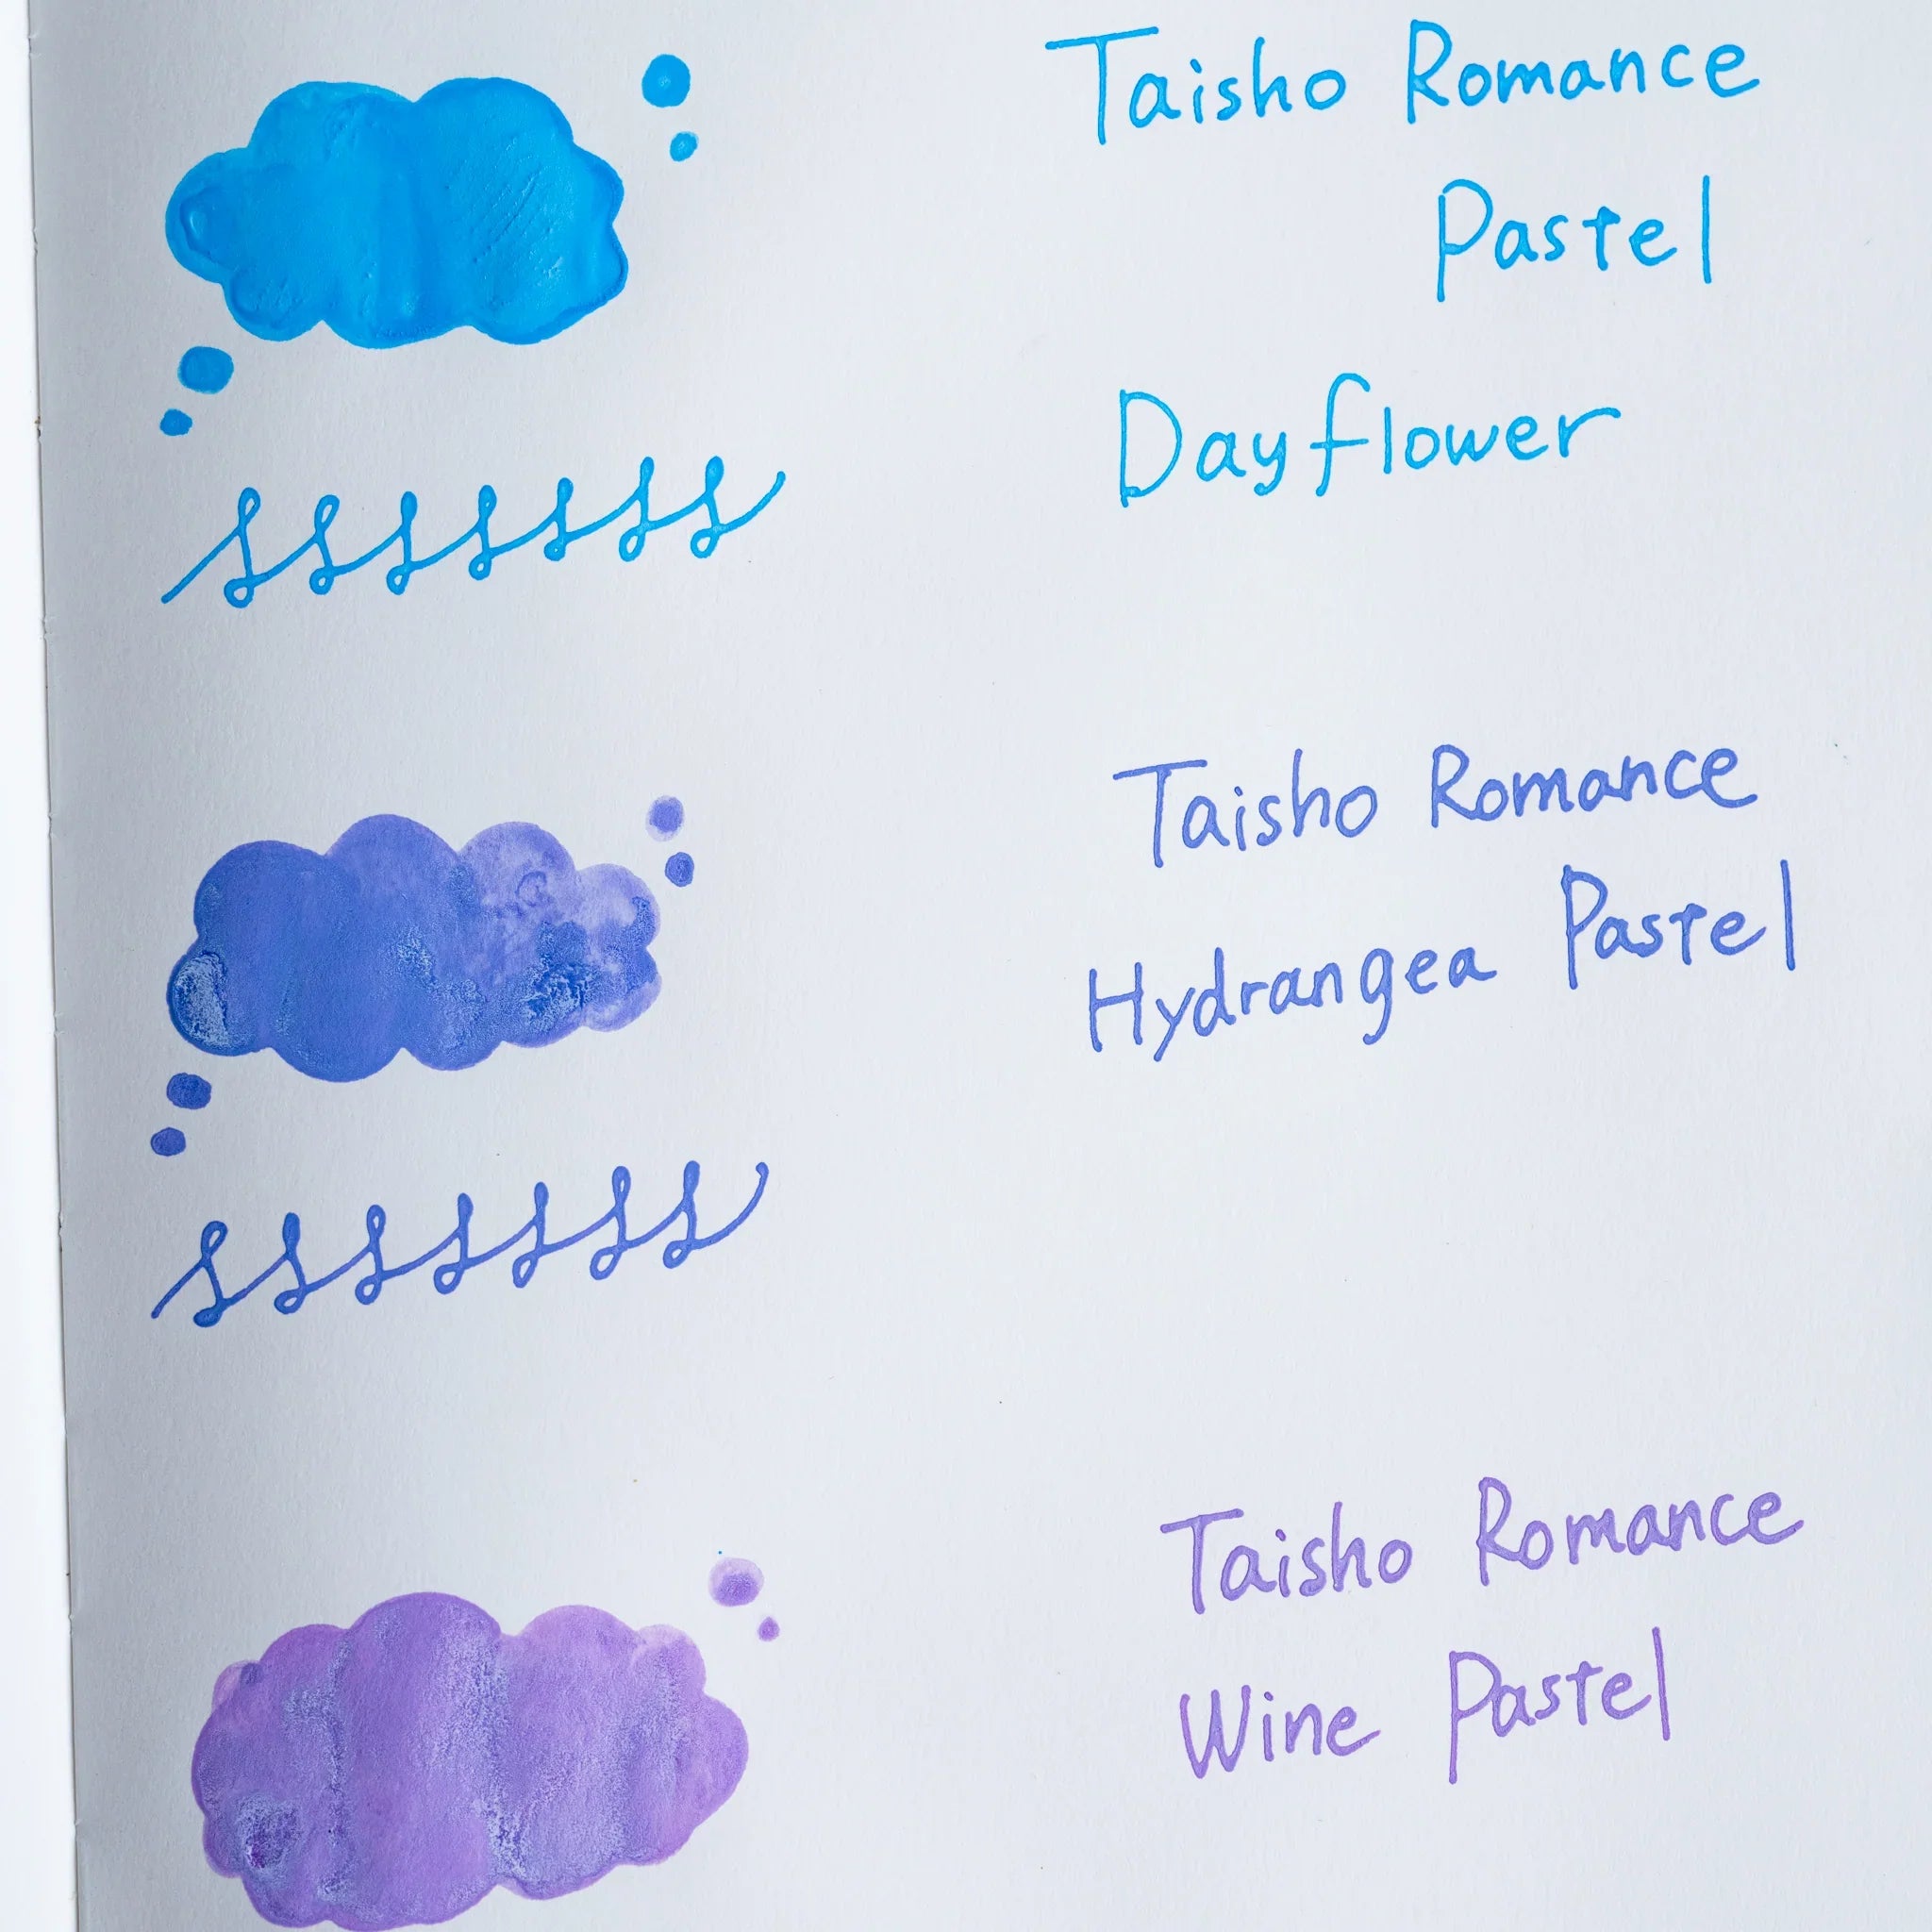 Taisho Romance
Pastel
Dayflower
Taisho Romance
Hydrangea Pastel
Taisho Romance
Wine Pastel